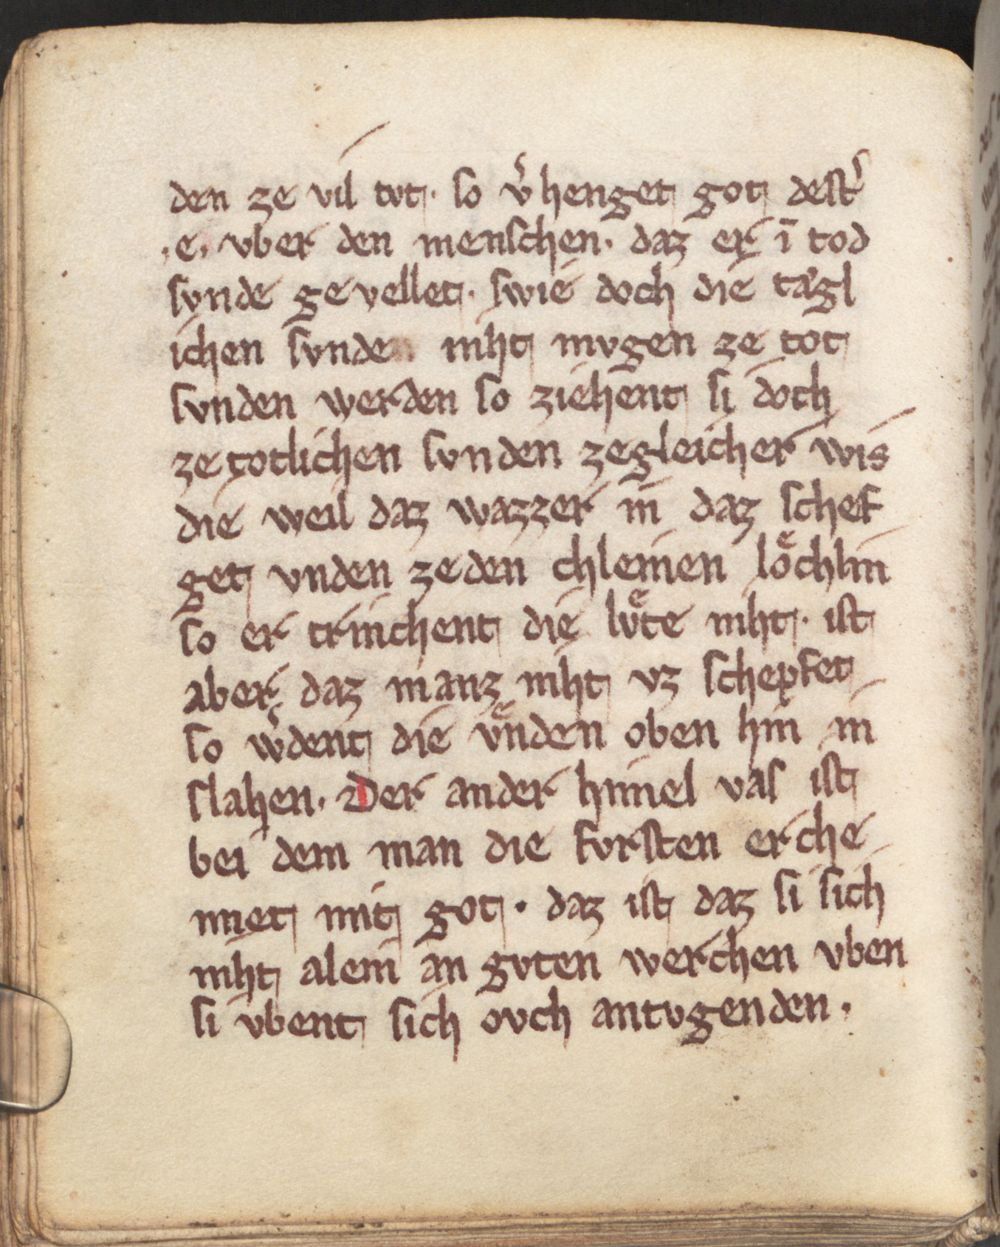 den ze vil tvt · so v͛henget got dest͛
·e· vber den menschen · daz er ī tod
svnde gevellet · swie doch die tægl
ichen svnden niht mvgen ze tot
svnden werden so ziehent si doch
zetotlichen svnden zegleicher wis
die weil daz wazzer in daz schef
get vnden zeden chleinen loͤchlin
so er trinchent die lvͤte niht · ist
aber daz manz niht vz schepfet
so w͛dent die vͤnden oben hin in
slahen · Der ander himel vas ist
bei dem man die fvrsten erche
nnet mit got · daz ist daz si sich
niht alein an gvten werchen vben
si vbent sich ovch antvgenden ·